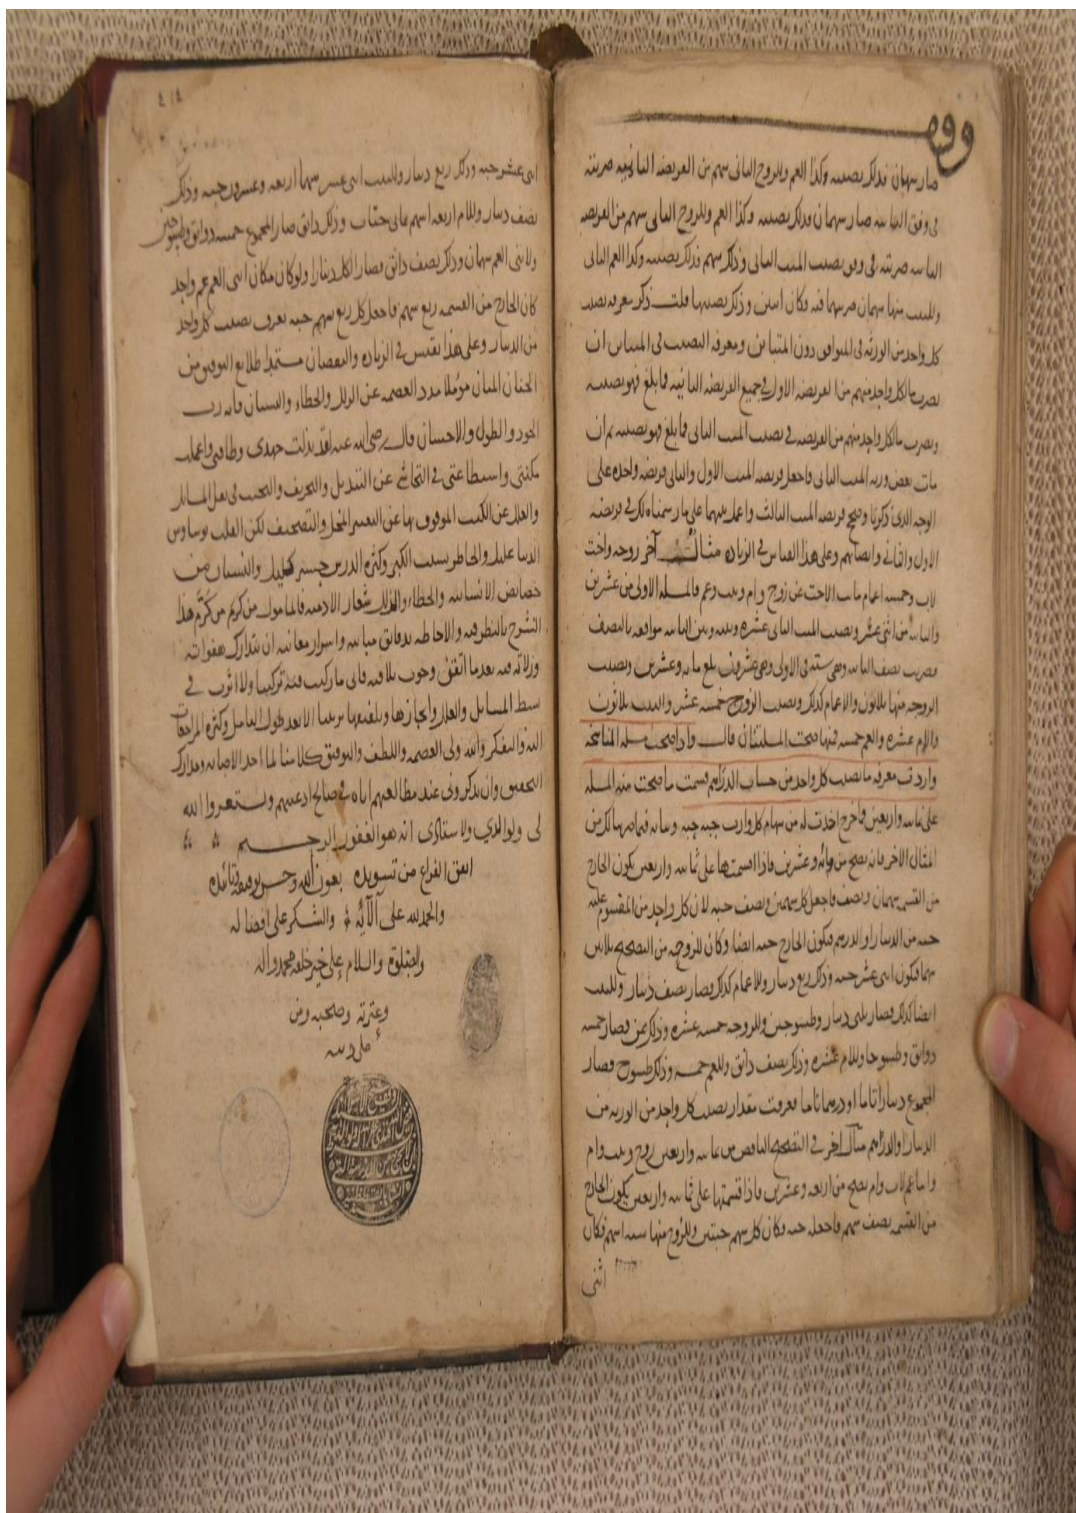 وقف
صار سهمان فذلك نصيبه وكذا العم وللزوج الثانى سهم من الفريضة الثانية ضربته
فى وفق الثانية صار سهمان فذلك نصيبه وكذا العم وللزوج الثانى سهم من الفريضة
الثانية ضربته فى وفق نصيب الميت الثانى وذلك سهم فذلك نصيبه وكذا العم الثانى
وللبنت منها سهمان ضربتهما فيه فكان اثنين وذلك نصيبها قلت ذكر معرفة نصيب
كل واحد من الورثة فى المتوافق دون المتباين ومعرفة النصيب فى المتباين ان
تضرب ما لكل واحد منهم من الفريضة الاولى فى جميع الفريضة الثانية فما بلغ فهو نصيبه
وتضرب ما لكل واحد منهم من الفريضة فى نصيب الميت الثانى فما بلغ فهو نصيبه ثم ان
مات بعض ورثة الميت الثانى فاجعل فريضة الميت الاول والثانى فريضة واحدة على
الوجه الذى ذكرنا وصحح فريضة الميت الثالث واعمل بينهما على ما رسمناه لك فى فريضة
الاول والثانى وانصبائهم وعلى هذا القياس فى الزيادة مثال آخر زوجة واخت
لاب وخمسة اعمام ماتت الاخت عن زوج وام وبنت وعم فالمسئلة الاولى من عشرين
والثانية من اثنى عشر ونصيب الميت الثانى عشرة وبينه وبين الثانية موافقة بالنصف
فضربت نصف الثانية وهى ستة فى الاولى وهى عشرون بلغ مائة وعشرين ونصيب
الزوجة منها ثلاثون والاعمام كذلك ونصيب الزوج خمسة عشر والبنت ثلاثون
والام عشرة والعم خمسة فمنها صحت المسئلتان قال واذا صحت مسئلة المناسخة
واردت معرفة ما نصيب كل واحد من حساب الدراهم قسمت ما صحت منه المسئلة
على ثمانية واربعين فما خرج اخذت له من سهام كل وارث حبة حبة وبيانه فيما ضربنا لك من
المثال الاخر فانه يصح من مائة وعشرين فاذا قسمتها على ثمانية واربعين يكون الخارج
من القسمة سهمان ونصف فاجعل كل سهمين ونصف حبة لان كل واحد من المقسوم عليه
حبة من الدينار او الدرهم فيكون الخارج حبة ايضا وكان للزوجة من التصحيح ثلاثين
سهما فيكون اثنى عشر حبة وذلك ربع دينار وللاعمام كذلك فصار نصف دينار وللبنت
ايضا كذلك فصار ثلثى دينار وطسوجين وللزوج خمسة عشر وذلك ثمن فصار خمسة
دوانق وطسوجا وللام عشرة وذلك نصف دانق وللعم خمسة وذلك طسوج فصار
المجموع دينارا تاما او درهما تاما فعرفت مقدار نصيب كل واحد من الورثة من
الدينار او الدراهم مثال آخر فى التصحيح الناقص من ثمانية واربعين زوج وبنت وام
وابنا عم لاب وام يصح من اربعة وعشرين فاذا قسمتها على ثمانية واربعين يكون الخارج
من القسمة نصف سهم فاجعله حبة فكان كل سهم حبتين وللزوج منها ستة اسهم فكان
اثنى
اثنى عشر حبة وذلك ربع دينار وللبنت اثنى عشر سهما اربعة وعشرون حبة وذلك
نصف دينار وللام اربعة اسهم ثمانى حبات وذلك دانق صار المجموع خمسة دوانق وطسوجين
ولابنى العم سهمان وذلك نصف دانق فصار الكل دينارا ولو كان مكان ابنى العم عم واحد
كان الخارج من القسمة ربع سهم فاجعل كل ربع سهم حبة تعرف نصيب كل واحد
من الدينار وعلى هذا تقيس فى الزيادة والنقصان مستمدا طلايع التوفيق من
الحنان المنان مؤملا مدد العصمة عن الزلل والخطاء والنسيان فانه رب
الجود والطول والاحسان قال رضى الله عنه لقد بذلت جهدى وطاقتى واعملت
مكنتى واستطاعتى فى التحاشى عن التبديل والتحريف والتجنب فى نقل المسائل
والعلل عن الكتب الموثوق بها عن التغيير المخل والتصحيف لكن القلب بوساوس
الدنيا عليل والخاطر بسبب الكبر وكثرة الدرس حسير كليل والنسيان من
خصائص الانسانية والخطاء والزلل شعار الادمية فالمامول من كريم من كرم هذا
الشرح بالنظر فيه والاحاطة بدقائق مبانيه واسرار معانيه ان يتدارك هفواته
وزلاته فيه بعد ما اتقن وجوب تلافيه فانى ما ركبت فيه تركيبا ولا اثرت فى
بسط المسائل والعلل وايجازها وتلفيقها ترتيبا الا بعد طول التامل وكثرة المراجعات
اليه والتفكر والله ولى العصمة واللطف والتوفيق
التحقيق وان يذكرونى عند مطالعتهم اياه فى صالح ادعيتهم ويستغفروا الله
لى ولوالدي ولاستاذى انه هو الغفور الرحيم
اتفق الفراغ من تسويده بعون الله وحسن توفيقه وتائيده
والحمد لله على آلائه والشكر على افضاله
والصلوة والسلام على خير خلقه محمد واله
وعترته وصحبه ومن